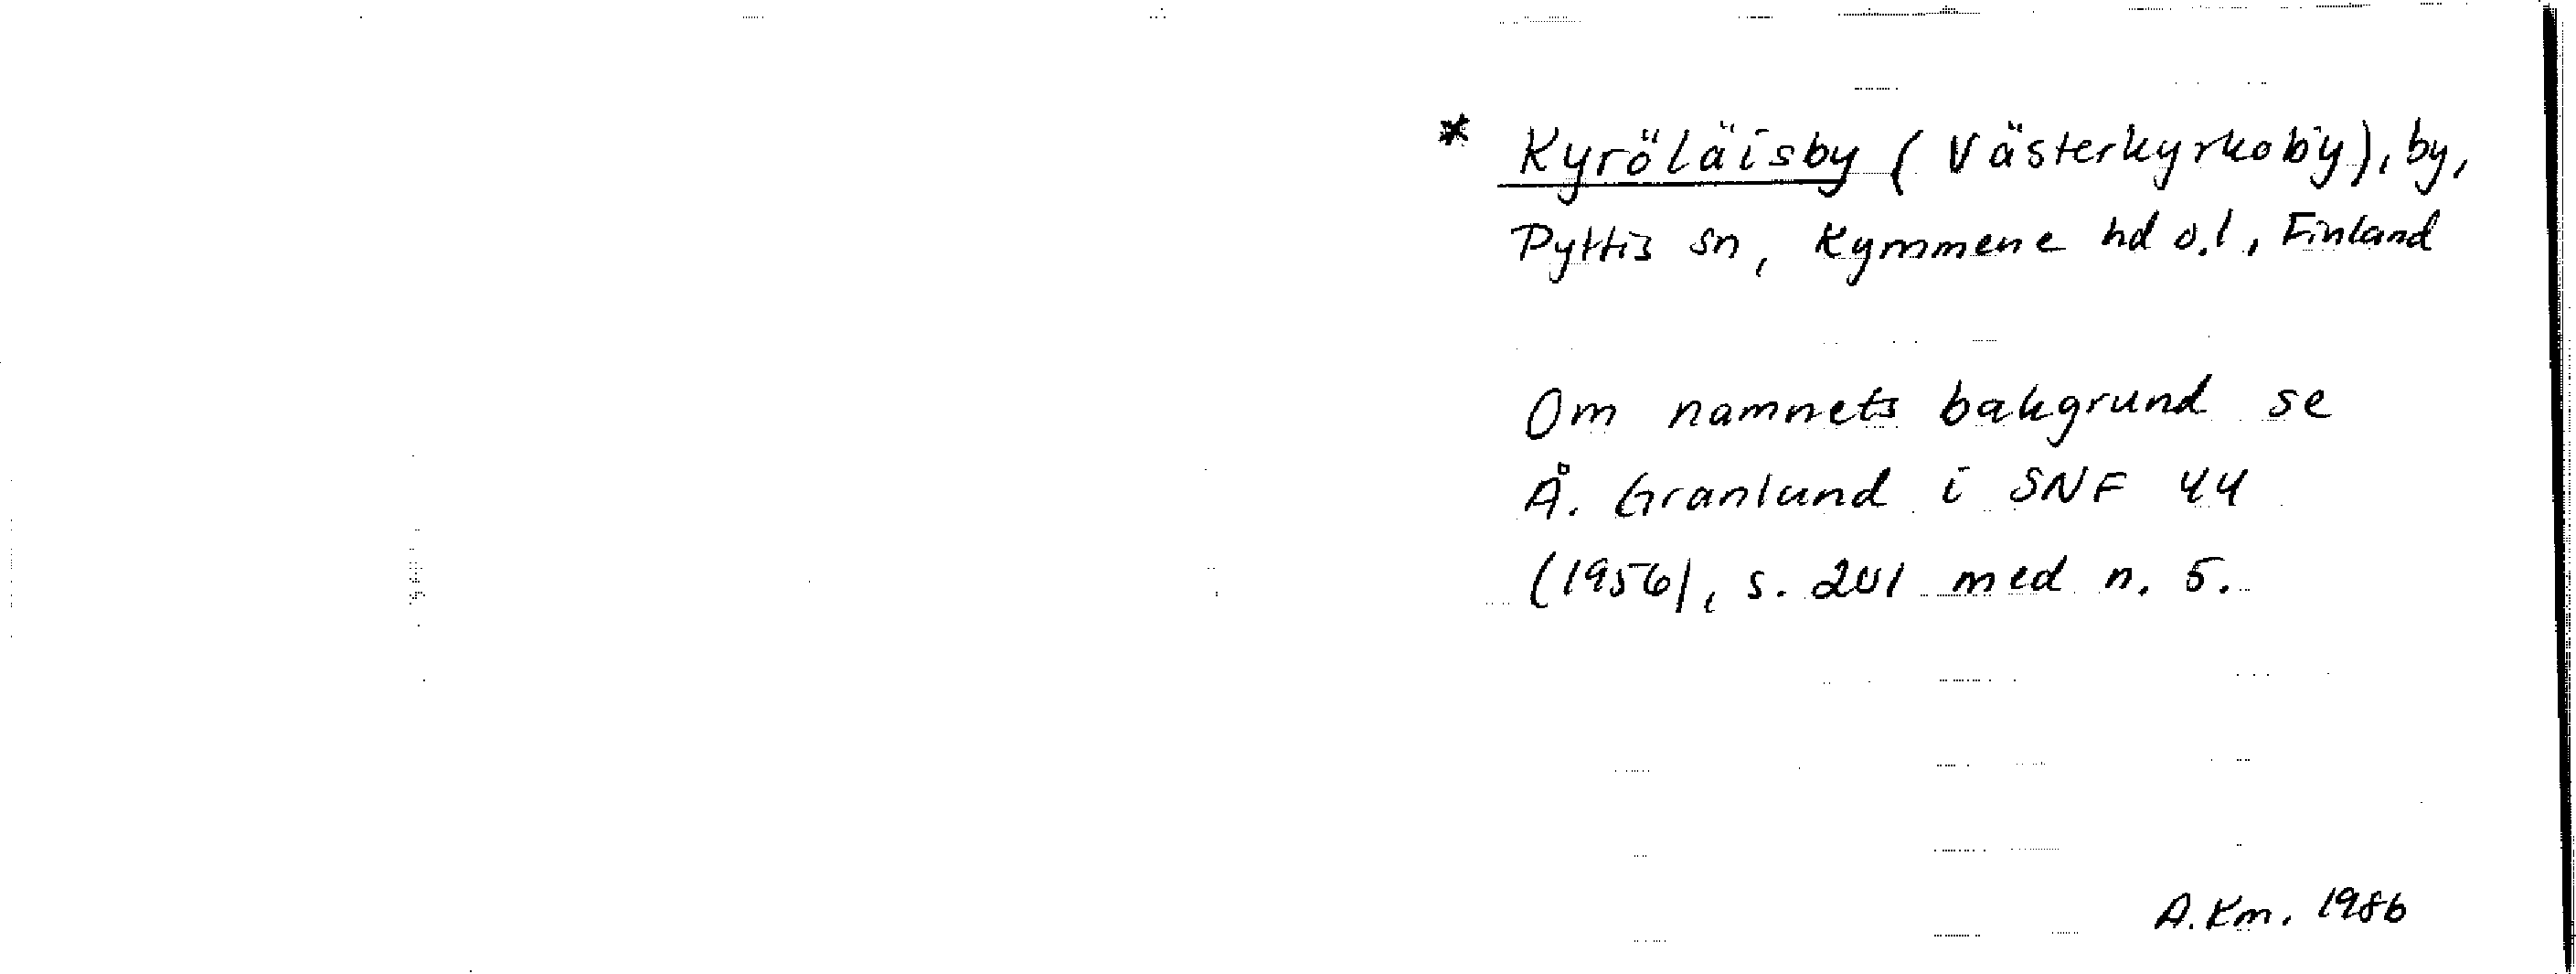 * Kyröläisby (Västerkyrkoby), by,
Pyttis sn, Kymmene hd o.l, Finland
Om namnets bakgrund se
Å. Granlund i SNF 44
(1956), s. 201 med n. 5.
A. Km. 1986